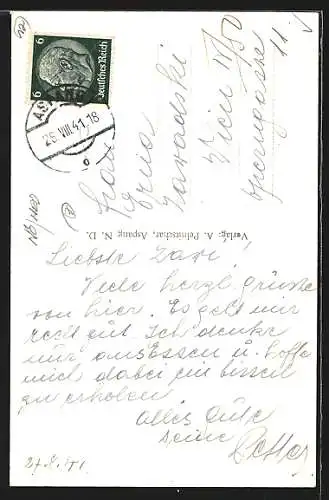 6 Deutsches Reich 6
ASP
26.VIII.41.18
Frau
Erna
Zavadski
Wien II/50
11
Verlag: A. Pelnitschar, Aspang N. D.
Liebste Zavi!
Viele herzl. Grüsse
von hier. Es geht mir
recht gut. Ich denke
nur ans Essen u. hoffe
mich dabei ein bissen
zu erholen
Alles Gute
Deine
27.8.41.